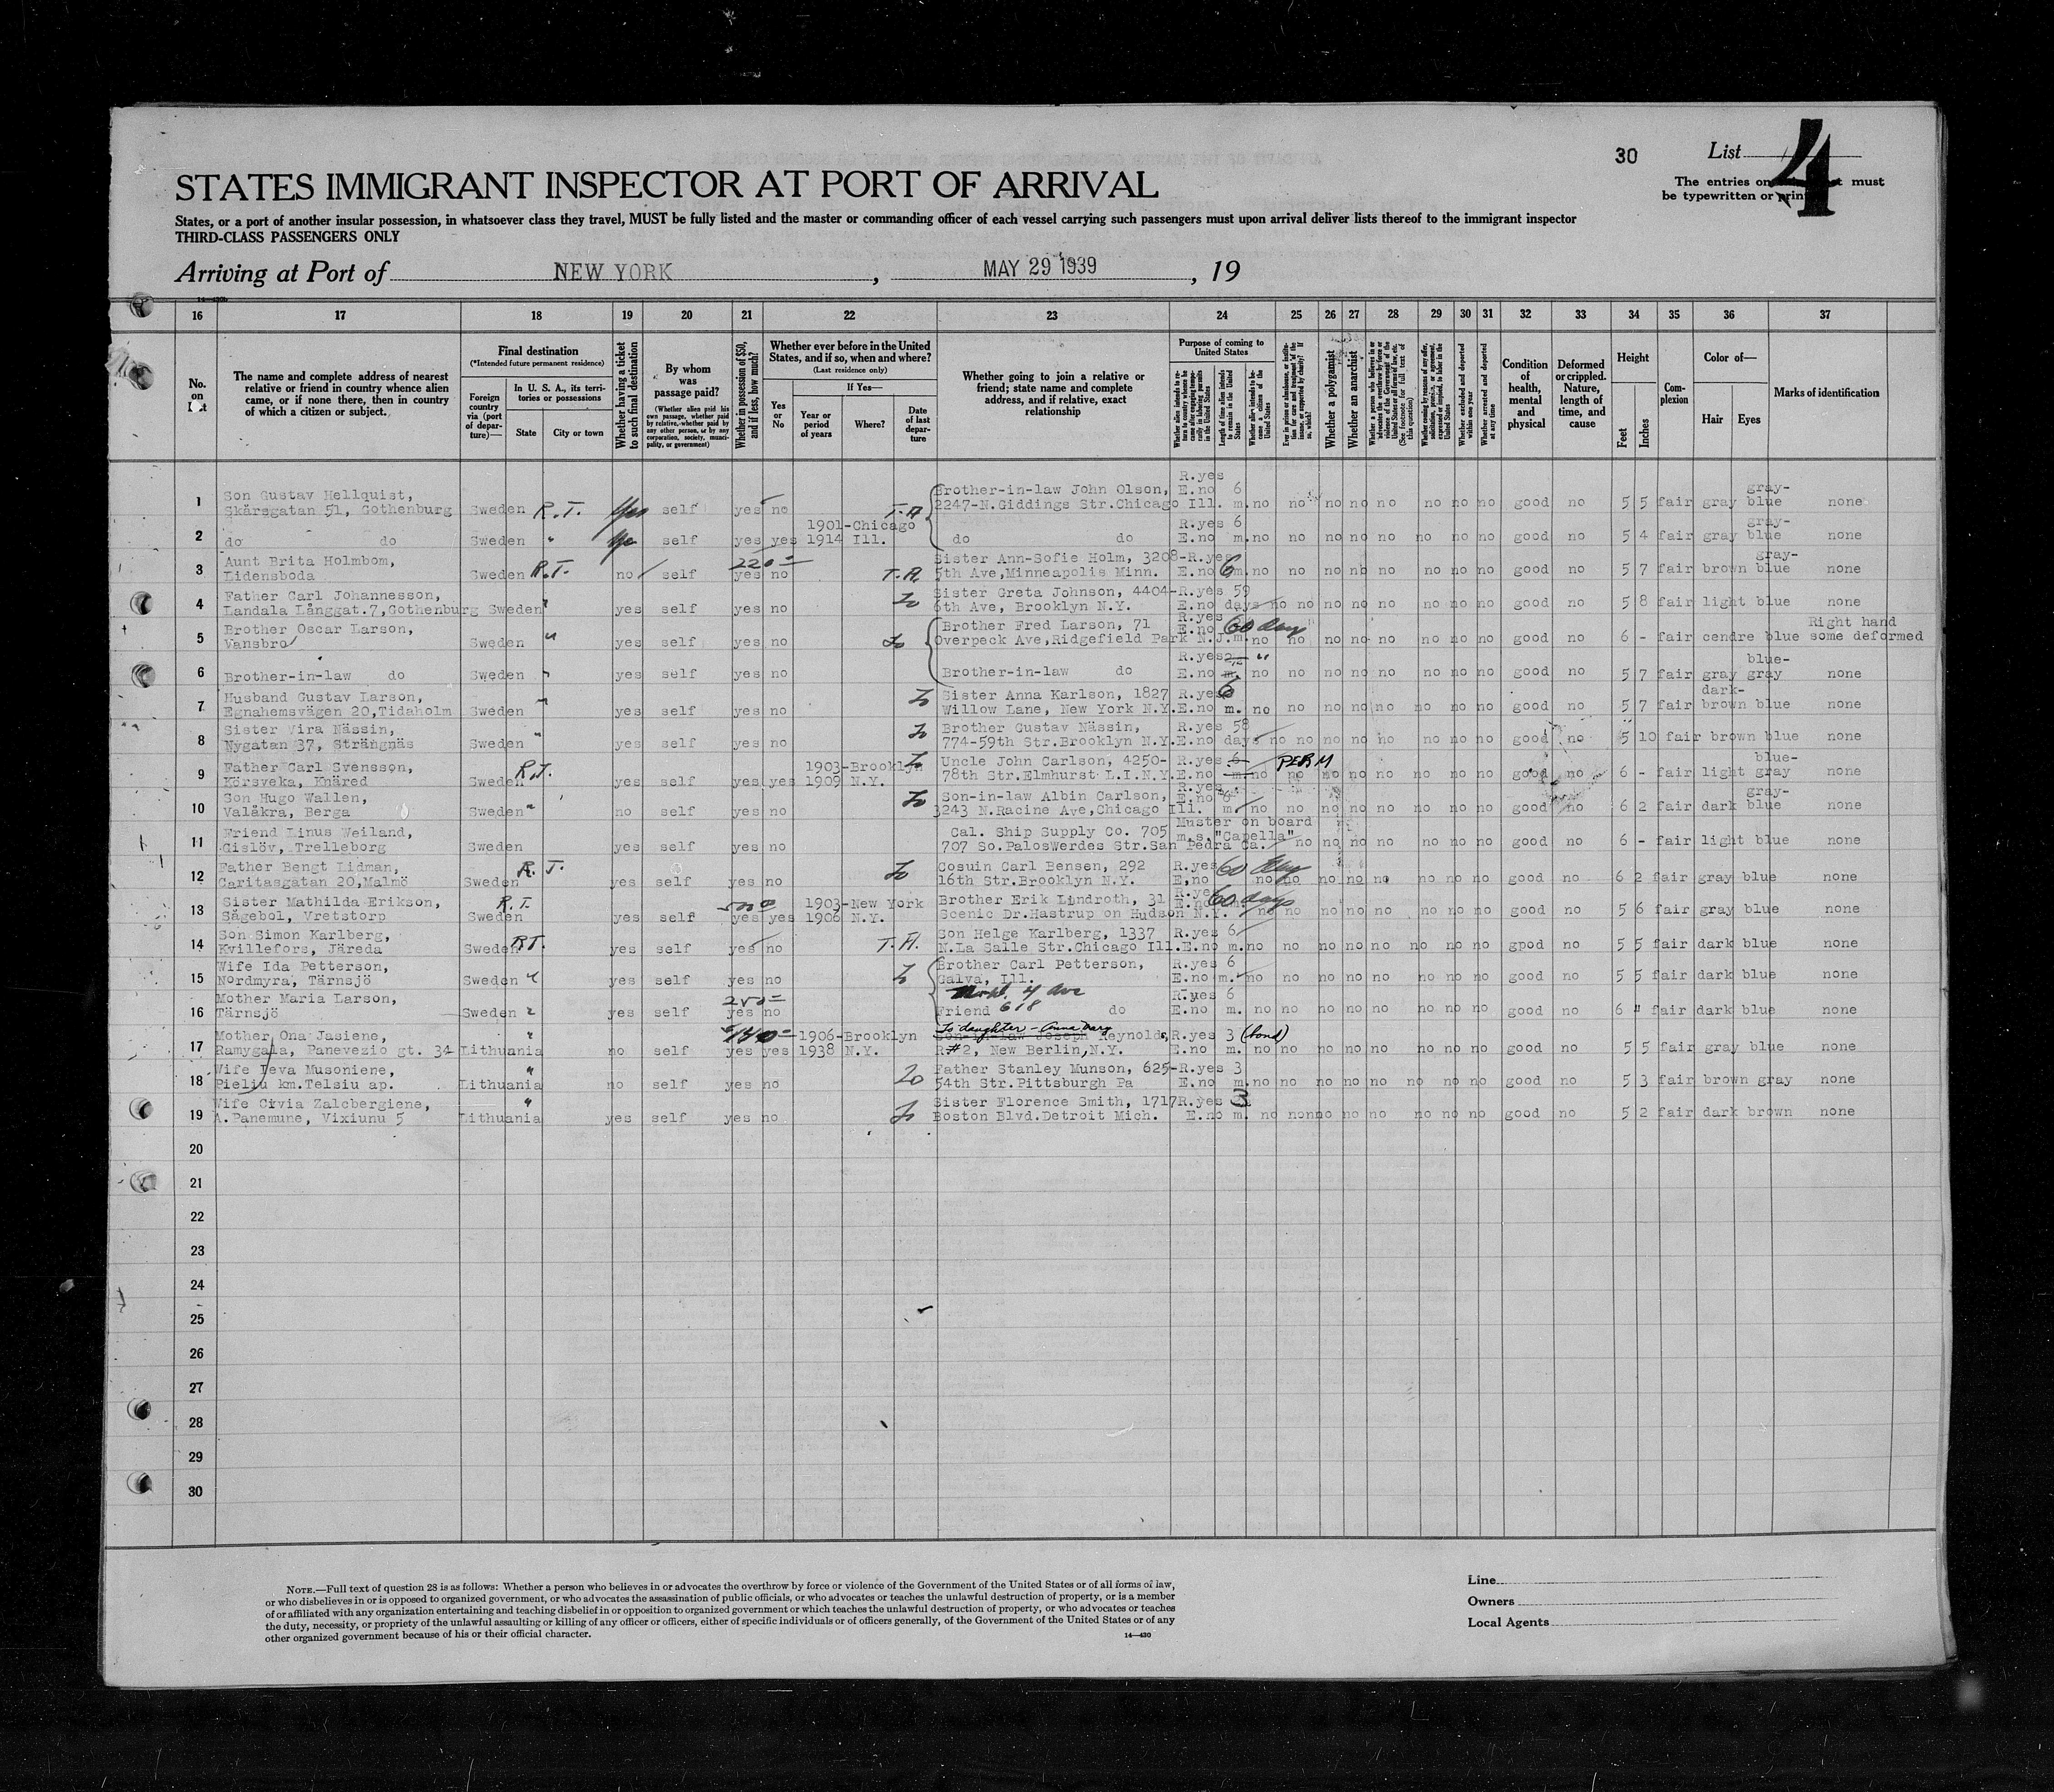 30
List 4
STATES IMMIGRANT INSPECTOR AT PORT OF ARRIVAL
The entries on must
be typewritten or
States, or a port of another insular possession, in whatsoever class they travel, MUST be fully listed and the master or commanding officer of each vessel carrying such passengers must upon arrival deliver lists thereof to the immigrant inspector
THIRD-CLASS PASSENGERS ONLY
Arriving at Port of NEW YORK , MAY 29 1939 , 19
16 17 18 19 20 21 22 23 24 25 26 27 28 29 30 31 32 33 34 35 36 37
No. on
The name and complete address of nearest relative or friend in country whence alien came, or if none there, then in country of which a citizen or subject.
Final destination
(*Intended future permanent residence)
Foreign country via (port of departure)—
In U. S. A., its territories or possessions
State
City or town
Whether having a ticket to such final destination
By whom was passage paid?
(Whether alien paid his own passage, whether paid by relative, whether paid by any other person, or by any corporation, society, municipality, or government)
Whether in possession of $50, and if less, how much?
Whether ever before in the United States, and if so, when and where?
(Last residence only)
Yes or No
If Yes—
Year or period of years
Where?
Date of last departure
Whether going to join a relative or friend; state name and complete address, and if relative, exact relationship
Purpose of coming to United States
Whether a polygamist
Whether an anarchist
Condition of health, mental and physical
Deformed or crippled. Nature, length of time, and cause
Height
Feet
Inches
Complexion
Color of—
Hair
Eyes
Marks of identification
1 Son Gustav Hellquist, Skärsgatan 51, Gothenburg Sweden R.T. Yes self yes no T.A. Brother-in-law John Olson, 2247-N.Giddings Str.Chicago Ill. R.yes E.no 6 m. no no no no no no no no good no 5 5 fair gray gray-blue none
2 do do Sweden " self yes yes 1901-1914 Chicago Ill. do do R.yes E.no 6 m. no no no no no no no no good no 5 4 fair gray gray-blue none
3 Aunt Brita Holmbom, Lidensboda Sweden R.T. no self 220= yes no T.A. Sister Ann-Sofie Holm, 3208-5th Ave,Minneapolis Minn. R.yes E.no 6 m. no no no no no no no no good no 5 7 fair brown gray-blue none
4 Father Carl Johannesson, Landala Långgat.7,Gothenburg Sweden " yes self yes no Sister Greta Johnson, 4404-6th Ave, Brooklyn N.Y. R.yes E.no 59 days no no no no no no no no good no 5 8 fair light blue none
5 Brother Oscar Larson, Vansbro Sweden " yes self yes no Brother Fred Larson, 71 Overpeck Ave,Ridgefield Park N.J. R.yes E.no 60 day m. no no no no no no no no good no 6 - fair cendre blue Right hand some deformed
6 Brother-in-law do Sweden " yes self yes no Brother-in-law do R.yes E.no " m. no no no no no no no no good no 5 7 fair gray blue-gray none
7 Husband Gustav Larson, Egnahemsvägen 20,Tidaholm Sweden " yes self yes no Sister Anna Karlson, 1827 Willow Lane, New York N.Y. R.yes E.no 6 m. no no no no no no no no good no 5 7 fair dark-brown blue none
8 Sister Vira Nässin, Nygatan 37, Strängnäs Sweden " yes self yes no Brother Gustav Nässin, 774-59th Str.Brooklyn N.Y. R.yes E.no 58 days no no no no no no no no good no 5 10 fair brown blue none
9 Father Carl Svensson, Körsveka, Knäred Sweden R.T. yes self yes yes 1903-1909 Brooklyn N.Y. Uncle John Carlson, 4250-78th Str.Elmhurst L.I.N.Y. R.yes E.no 6 m. PERM no no no no no no no no good no 6 - fair light blue-gray none
10 Son Hugo Wallen, Valåkra, Berga Sweden " no self yes no Son-in-law Albin Carlson, 3243 N.Racine Ave,Chicago Ill. R.yes E.no 6 m. no no no no no no no no good no 6 2 fair dark gray-blue none
11 Friend Linus Weiland, Gislöv, Trelleborg Sweden yes self yes no Cal. Ship Supply Co. 705 707 So.PalosWerdes Str.San Pedra Ca. Muster on board m.s."Capella" no no no no no no no good no 6 - fair light blue none
12 Father Bengt Lidman, Caritasgatan 20,Malmö Sweden R.T. yes self yes no Cosuin Carl Bensen, 292 16th Str.Brooklyn N.Y. R.yes E,no 60 day no no no no no no no no good no 6 2 fair gray blue none
13 Sister Mathilda Erikson, Sågebol, Vretstorp Sweden R.T. yes self 500 yes yes 1903-1906 New York N.Y. Brother Erik Lindroth, 31 Scenic Dr.Hastrup on Hudson N.Y. R.yes E.no 60 days no no no no no no no no good no 5 6 fair gray blue none
14 Son Simon Karlberg, Kvillefors, Järeda Sweden R.T. yes self yes no T.A. Son Helge Karlberg, 1337 N.La Salle Str.Chicago Ill. R.yes E.no 6 m. no no no no no no no no gpod no 5 5 fair dark blue none
15 Wife Ida Petterson, Nordmyra, Tärnsjö Sweden " yes self yes no Brother Carl Petterson, Galva, Ill. R.yes E.no 6 m. no no no no no no no no good no 5 5 fair dark blue none
16 Mother Maria Larson, Tärnsjö Sweden " yes self 250= yes no Friend 618 4 Ave do R.yes E.no 6 m. no no no no no no no no good no 6 " fair dark blue none
17 Mother Ona Jasiene, Ramygala, Panevezio gt. 34 Lithuania " no self 140= yes yes 1906-1938 Brooklyn N.Y. To daughter - Anna Mary Son-in-law Joseph Reynolds, R#2, New Berlin,N.Y. R.yes E.no 3 m. (bond) no no no no no no no no good no 5 5 fair gray blue none
18 Wife Ieva Musoniene, Pieliu km.Telsiu ap. Lithuania " no self yes no Father Stanley Munson, 625-54th Str.Pittsburgh Pa R.yes E.no 3 m. no no no no no no no no good no 5 3 fair brown gray none
19 Wife Civia Zalcbergiene, A.Panemune, Vixiunu 5 Lithuania " yes self yes no Sister Florence Smith, 1717 Boston Blvd.Detroit Mich. R.yes E.no 3 m. no nonno no no no no no good no 5 2 fair dark brown none
20
21
22
23
24
25
26
27
28
29
30
NOTE.—Full text of question 28 is as follows: Whether a person who believes in or advocates the overthrow by force or violence of the Government of the United States or of all forms of law,
or who disbelieves in or is opposed to organized government, or who advocates the assassination of public officials, or who advocates or teaches the unlawful destruction of property, or is a member
of or affiliated with any organization entertaining and teaching disbelief in or opposition to organized government or which teaches the unlawful destruction of property, or who advocates or teaches
the duty, necessity, or propriety of the unlawful assaulting or killing of any officer or officers, either of specific individuals or of officers generally, of the Government of the United States or of any
other organized government because of his or their official character.
14—430
Line
Owners
Local Agents